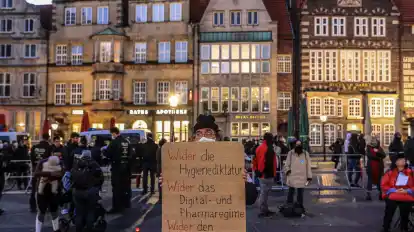 RATS APOTHEKE
Wider die
Hygienediktatur
Wider das
Digital- und
Pharmaregime
Wider den